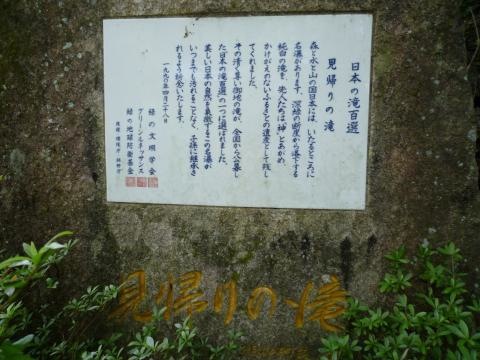 日本の滝百選
見帰りの滝
森と水と山の国日本には、いたるところに
名瀑があります。深緑の断崖から落下する
純白の滝を、先人たちは「神」とあがめ、
かけがえのないふるさとの遺産として残し
てくれました。
その清く尊い御地の滝が、全国から公募し
た「日本の滝百選」の一つに選ばれました。
美しい日本の自然を象徴するこの名瀑が
いつまでも汚れることなく、子孫に継承さ
れるよう祈念いたします。
一九九〇年四月二十八日
緑の文明学会
グリーンルネッサンス
緑の地球防衛基金
後援 環境庁 林野庁
見帰りの滝